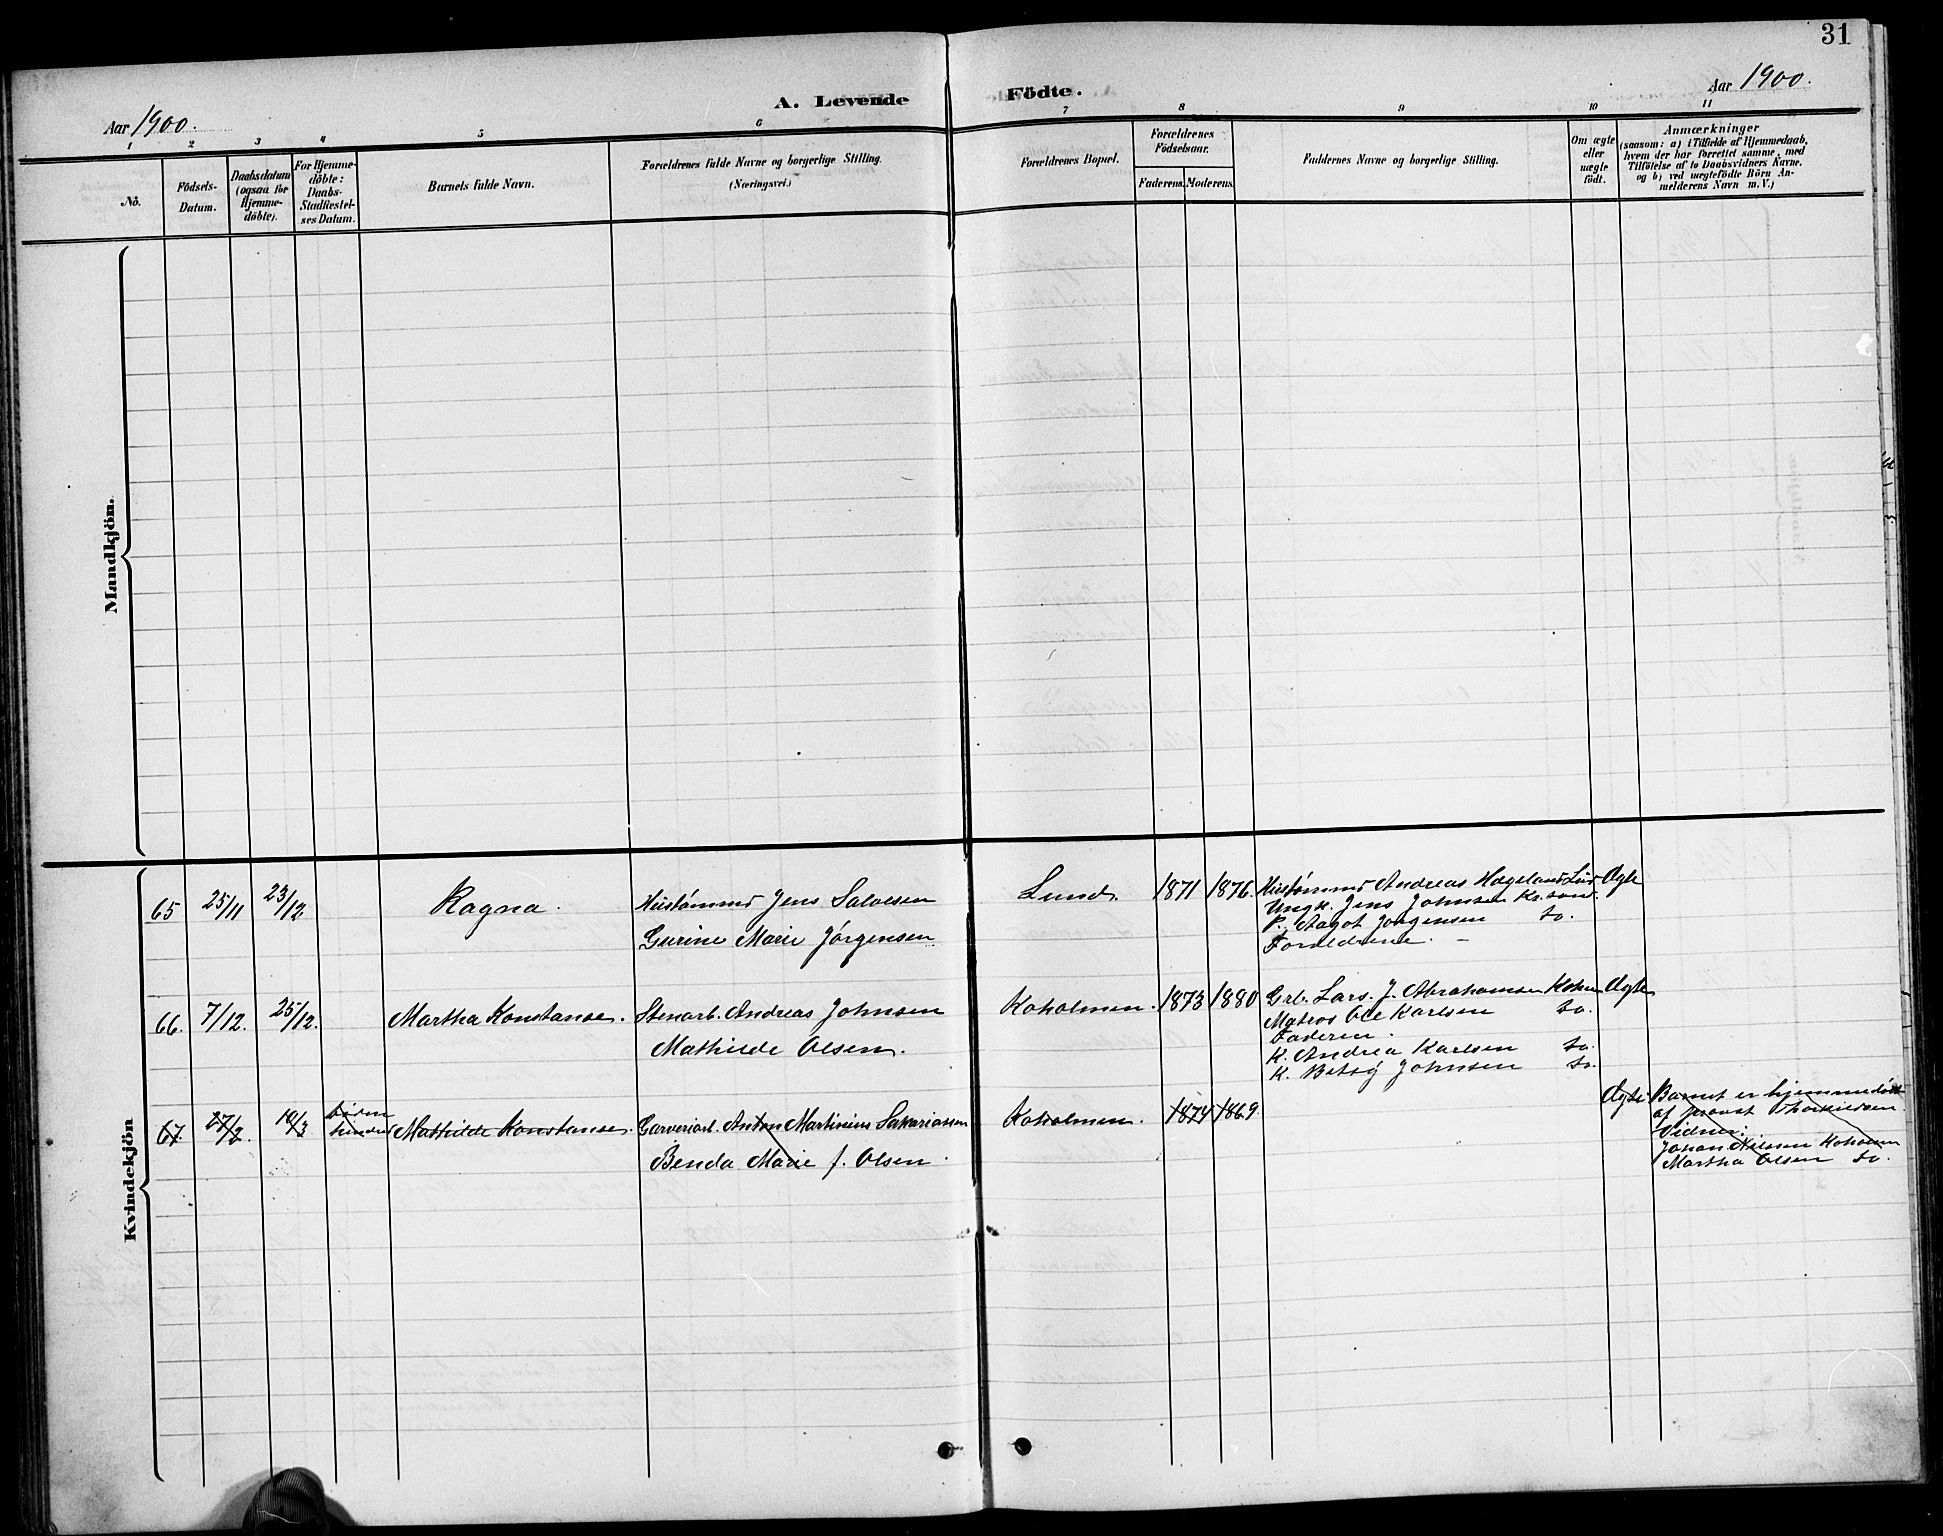 31
Aar 1900.
A. Levende Födte.
Aar 1900.
1 2 3 4 5 6 7 8 9 10 11
No.
Födsels-
Datum.
Daabsdatum
(ogsaa for
Hjemme-
döbte).
For Hjemme-
döbte:
Daabs-
Stadfestel-
ses Datum.
Barnets fulde Navn.
Forældrenes fulde Navne og borgerlige Stilling.
(Næringsvei.)
Forældrenes Bopæl.
Forældrenes
Födselsaar.
Faderens. Moderens.
Faddernes Navne og borgerlige Stilling.
Om ægte
eller
uægte
født.
Anmærkninger
(saasom: a) i Tilfælde af Hjemmedaab,
hvem der har forrettet samme, med
Tilföielse af to Daabsvidners Navne,
og b) ved uægtefödte Börn An-
melderens Navn m. V.)
Mandkjön.
Kvindekjön
65 25/11 23/12 Ragna. Hustømmer Jens Salvesen Lund. 1871 1876. Hustømmer Andreas Hageland Lund Ægte
Gurine Marie Jørgensen
Ungk. Jens Johnsen Kr.sand.
P. Aagot Jørgensen do.
Forældrene. —
66. 7/12. 25/12. Martha Konstanse. Stenarb. Andreas Johnsen Koholmen. 1873 1880 Grb. Lars. J. Abrahamsen Kohn Ægte
Mathilde Olsen.
Matros Ole Karlsen do.
Faderen.
K. Andrea Karlsen do.
K. Betsy Johnsen do.
67. 27/2 18/3 Mathilde Konstanse. Garveriarb. Anton Martinius Sakariassen Koholmen. 1874 1869. Ægte
Benda Marie f. Olsen.
Barnet er hjemmedøbt
af provst Thorkildsen.
Vidner:
Johan Nilsen Koholmen
Martha Olsen do.